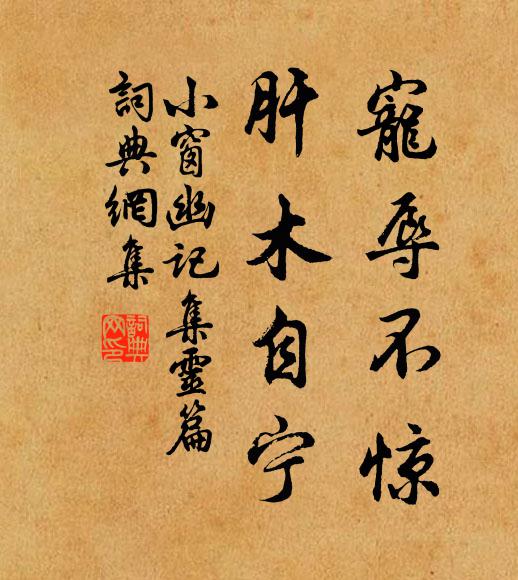 寵辱不惊
肝木自宁
小窗幽记集靈篇
詞典網集
詞典网印